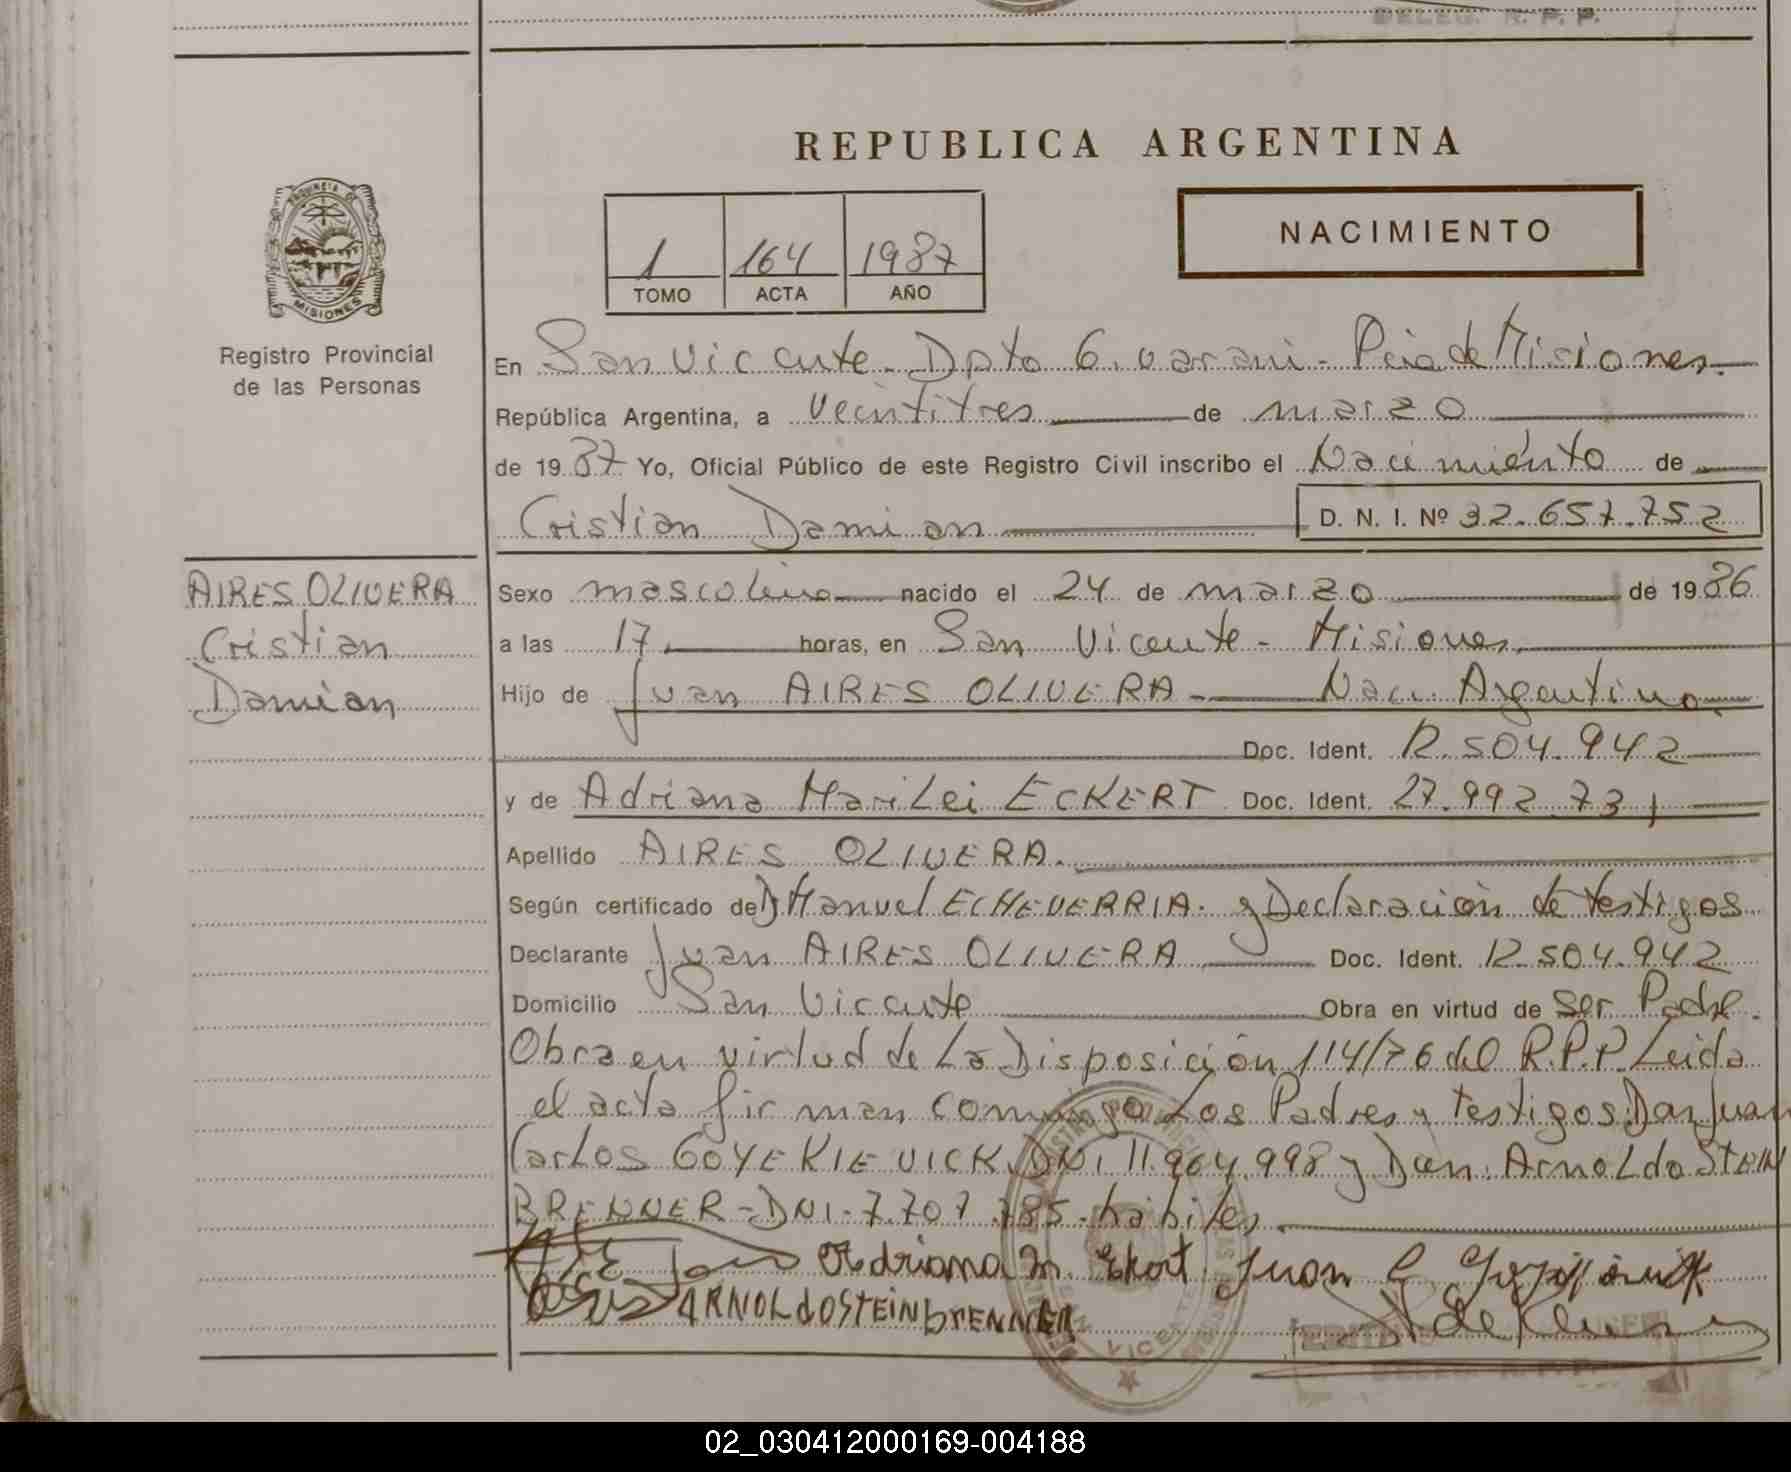 DELEG. R. P. P.
REPUBLICA ARGENTINA
PROVINCIA DE
MISIONES
Registro Provincial
de las Personas
1 164 1987
TOMO ACTA AÑO
NACIMIENTO
En San Vicente - Dpto Guarani - Pcia de Misiones.
República Argentina, a veintitres de marzo
de 1987 Yo, Oficial Público de este Registro Civil inscribo el Nacimiento de
Cristian Damian D. N. I. Nº 32.657.752
AIRES OLIVERA
Cristian
Damian
Sexo masculino nacido el 24 de marzo de 1986
a las 17 horas, en San Vicente - Misiones.
Hijo de Juan AIRES OLIVERA - Nac. Argentino.
Doc. Ident. 12.504.942
y de Adriana MariLei ECKERT Doc. Ident. 27.992.731
Apellido AIRES OLIVERA.
Según certificado de Dr Manuel ECHEVERRIA. y Declaración de testigos
Declarante Juan AIRES OLIVERA Doc. Ident. 12.504.942
Domicilio San Vicente Obra en virtud de ser Padre.
Obra en virtud de La Disposición 114/76 del R.P.P. Leida
el acta firman conmigo Los Padres y testigos Don Juan
CarLos GOYEKIEVICK DNI 11.964.998 y Don. ArnoLdo STEIN
BRENNER - DNI - 7.707.785 - habiles.
Adriana M. Ekert Juan C
ARNOLdO STEINbrENNER
VICENTE
02_030412000169-004188